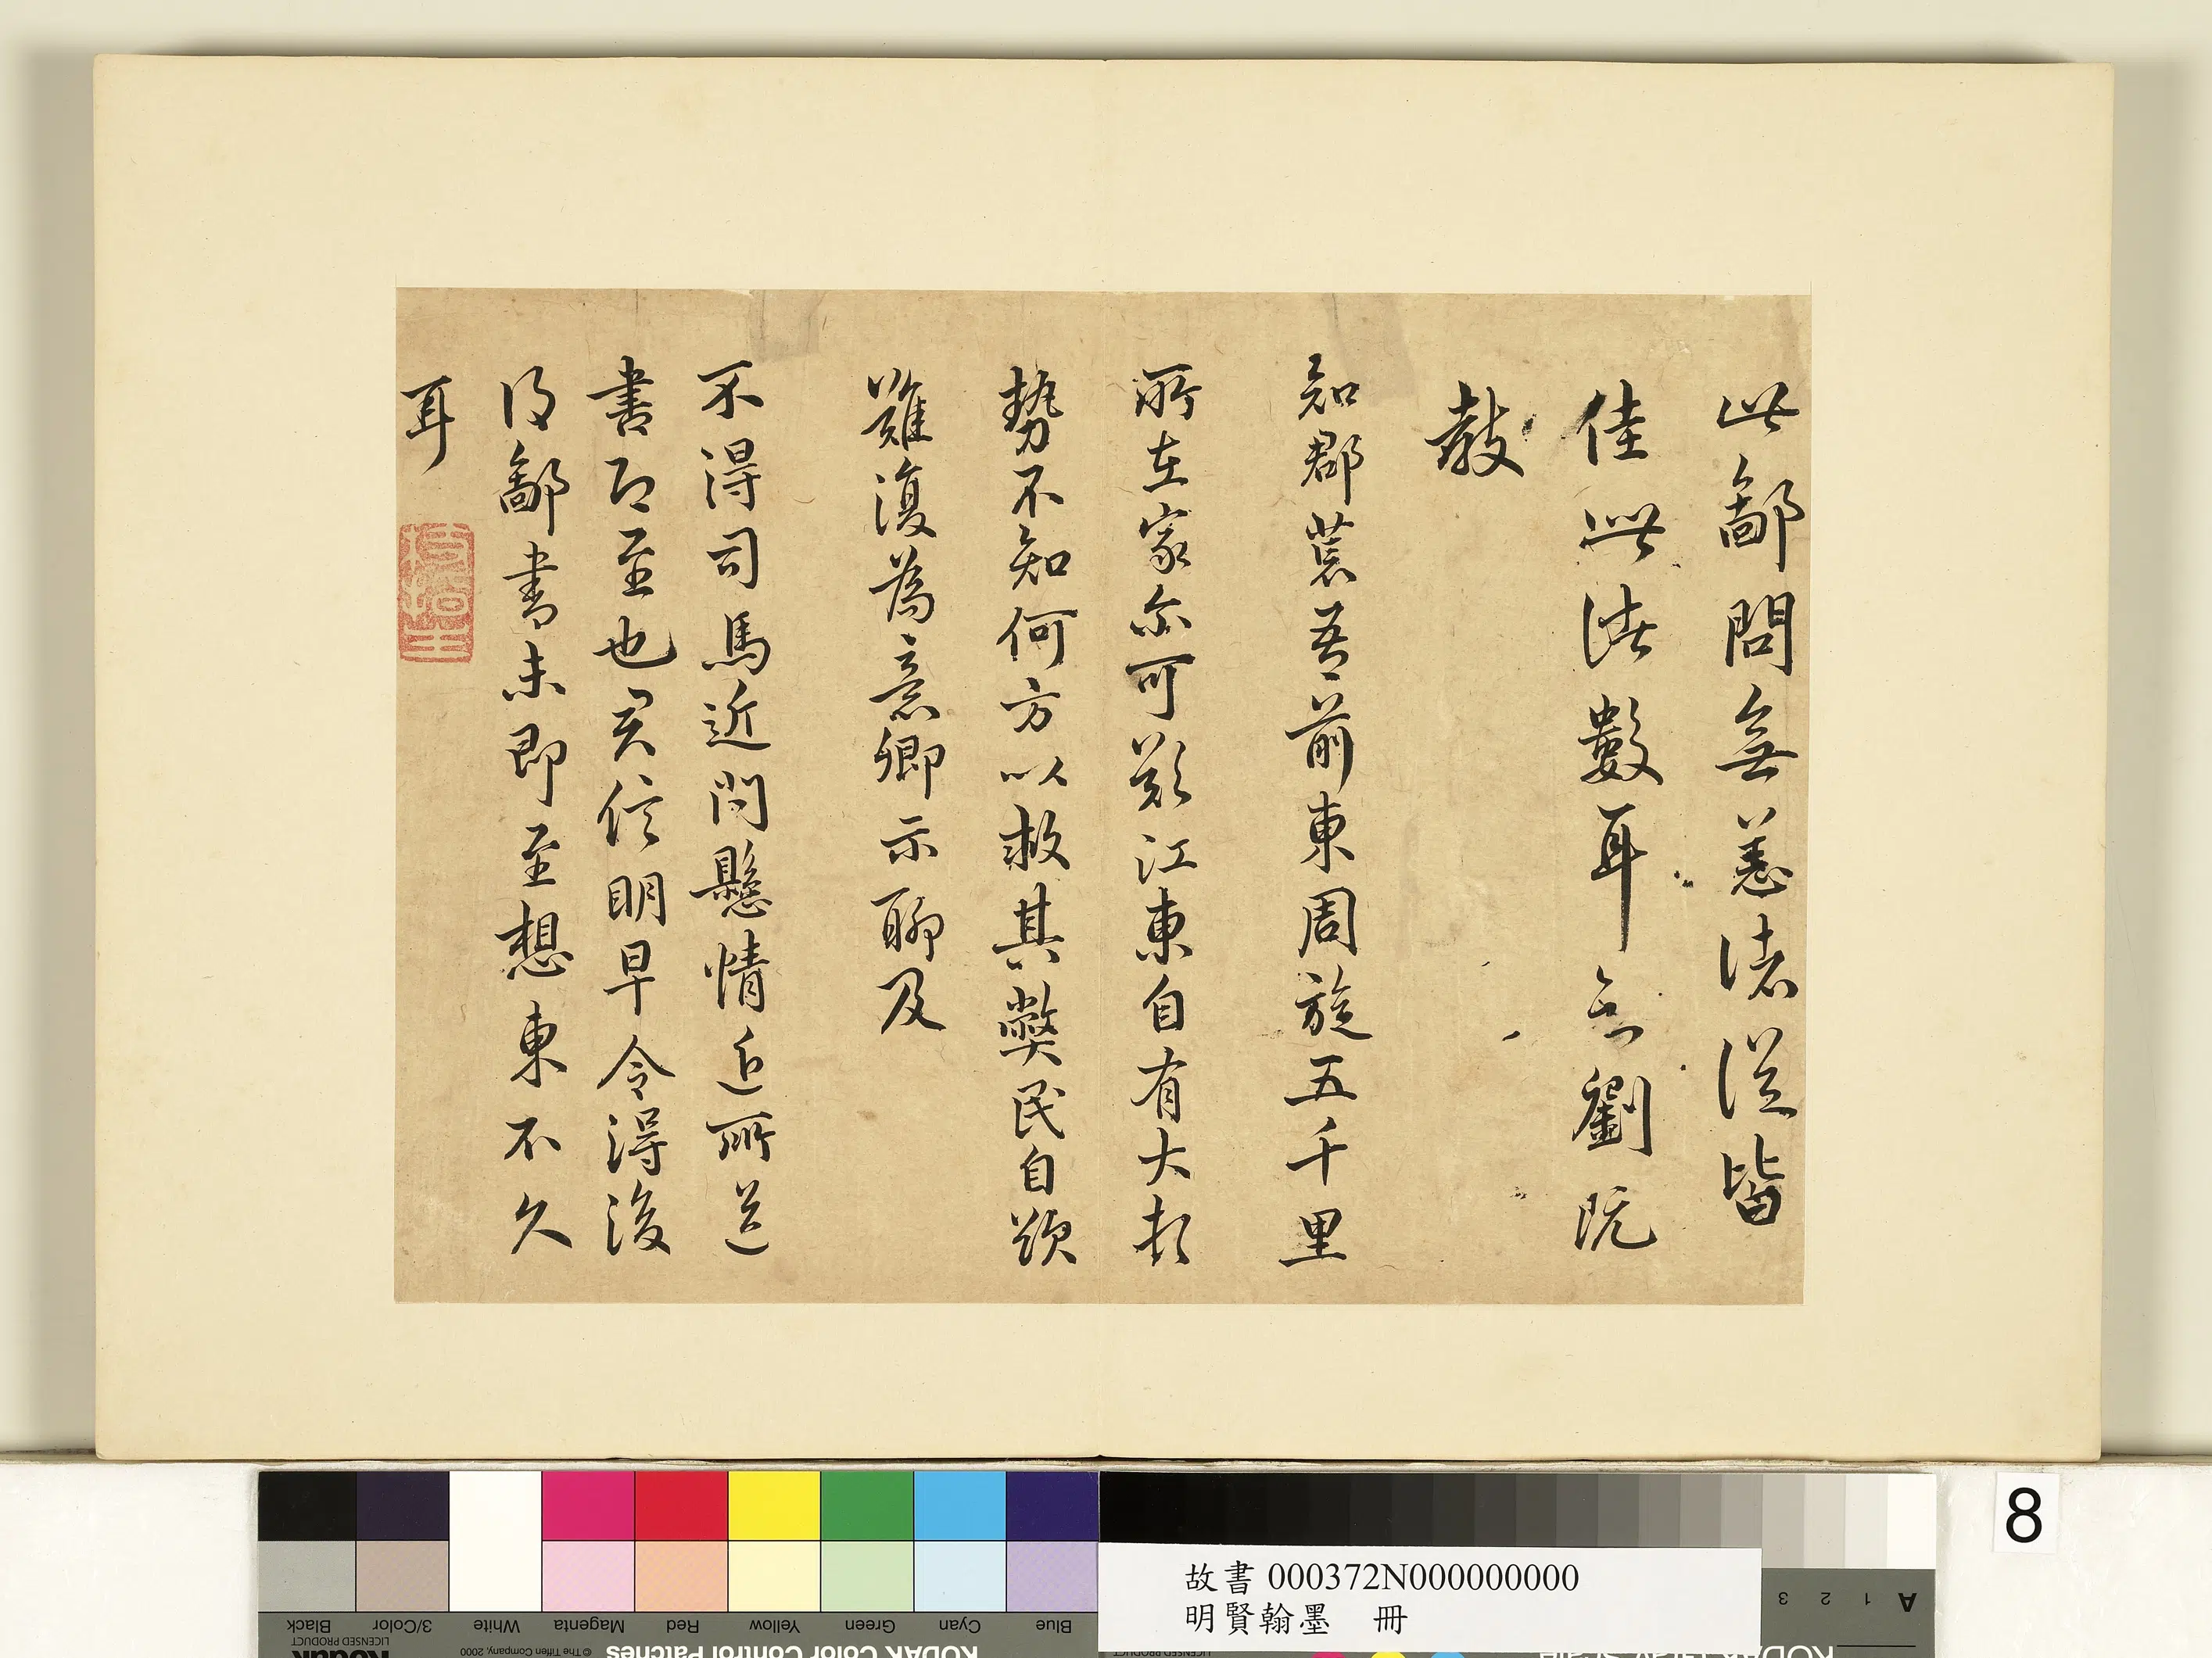 此鄙問無恙諸從皆
佳數耳云劉阮
教
知郡荒吾前東周旋五千里
所在家尔可歎江東自有大頓
勢不知何方以救其弊民自欲
難復為意卿示聊及
不得司馬近問懸情近所送
書即至也君信明早令得後
得鄙書未即至想東不久
耳
枝指生
8
故書 000372N000000000
明賢翰墨 冊
Black
3/Color
White
Magenta
Red
Yellow
Green
Cyan
Blue
Kodak
LICENSED PRODUCT
© The Tiffen Company, 2000
KODAK Color Control Patches
A 1 2 3